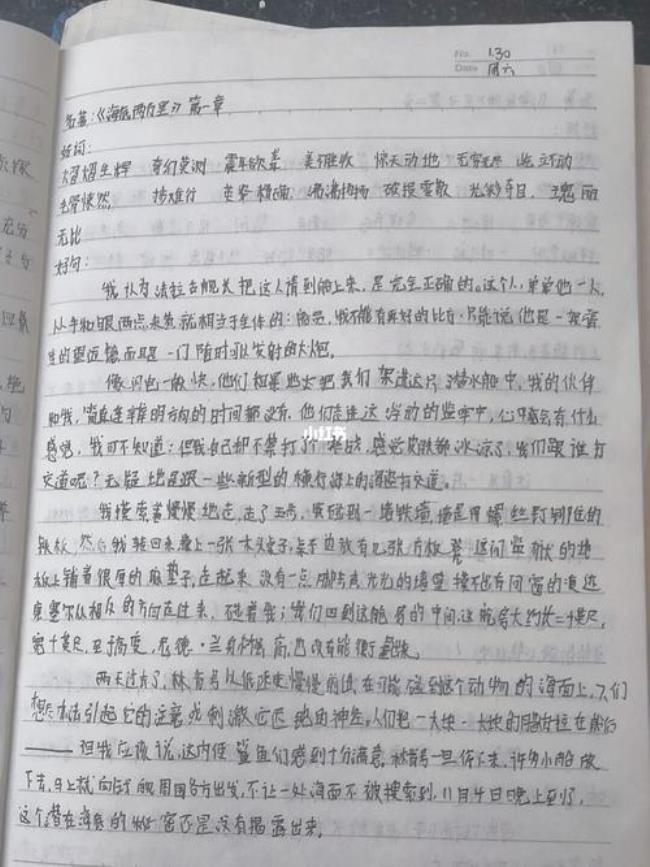 No. 1.30
Date 周六
名著:《海底两万里》第一章
好词:
熠熠生辉 变幻莫测 美不胜收 惊天动地 无穷无尽
毛骨悚然 步难行 光彩夺目 瑰丽
无比
好句:
我认为法拉古舰长把这人请到船上来,是完全正确的。这个人,单单他一人,
从手和眼两点来看,就相当于全体的船员,我不能有再好的比方,只能说,他是一架
的望远镜而且是一门随时可以发射的大炮。
像闪电一般快,他们粗暴地去把我们架进这只潜水船中,我的伙伴
和我,简直连辨明方向的时间都没有。他们走进这浮动的监牢中,心中会有什么
小红书
感觉,我可不知道;但我自己却不禁打了寒战,感觉皮肤都冰凉了,我们跟谁打
交道呢?无疑地是跟一些新型的横行海上的海盗打交道。
我摸索着慢慢地走,走了五步,碰到一堵铁墙,墙是用螺丝钉铆住的
铁板,然后我转回来,撞上一张木头桌子,桌子边放有几张方板凳。这间监狱的地
板上铺着很厚的麻垫子,走起来没有一点脚步声。光光的墙壁摸不出有门窗的痕迹
康塞尔从相反的方向走过来,碰着我;我们回到这舱房的中间,这舱房大约长二十英尺,
宽十英尺。至于高度,尼德·兰身材很高,也没有能衡量出来。
两天过去了,林肯号以低速慢慢前进,在可能碰到这个动物的海面上,人们
想尽办法引起它的注意或刺激它的神经。人们把一大块一大块的腊肉拉在船后
——但我应该说,这只使鲨鱼们感到十分满意。林肯号一旦停下来,许多小船放
下去,马上就向船的周围各方出发,不让一处海面不被搜索到,11月4日晚上到了,
这个潜在海底的秘密还是没有揭露出来。